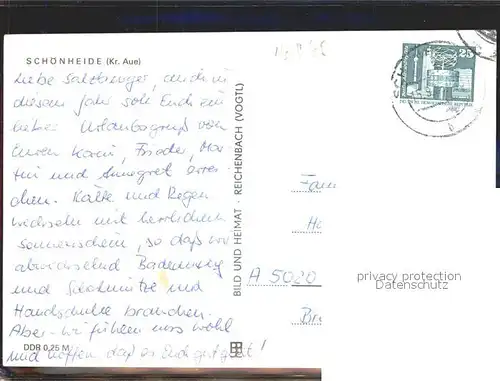 SCHÖNHEIDE (Kr. Aue)
Liebe Salzburger, auch in
diesem Jahr soll Euch ein
lieber Urlaubsgruß von
Euren Karin, Frieder, Mar-
tin und Annegret errei-
chen. Kälte und Regen
wechseln mit herrlichem
Sonnenschein, so daß wir
abwechselnd Badeanzug
und Schlafmütze und
Handschuhe brauchen.
Aber wir fühlen uns wohl
und hoffen, daß es Euch gut geht!
DDR 0,25 M
BILD UND HEIMAT · REICHENBACH (VOGTL)
25
DEUTSCHE DEMOKRATISCHE REPUBLIK
Fam
A 5020
privacy protection
Datenschutz